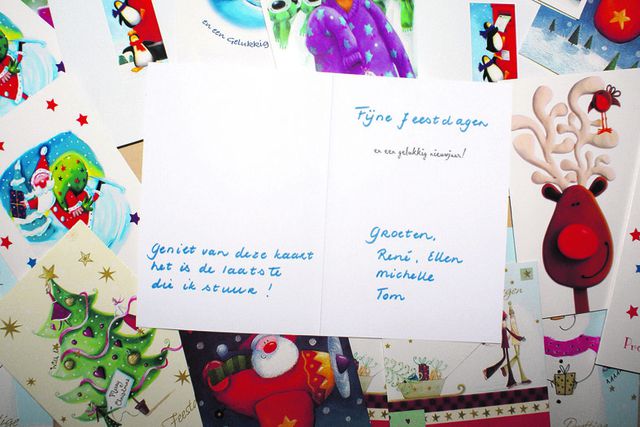 en een Gelukkig
Fijne feestdagen
en een gelukkig nieuwjaar!
Geniet van deze kaart
het is de laatste
die ik stuur !
Groeten,
René, Ellen
michelle
Tom
Merry
Christmas